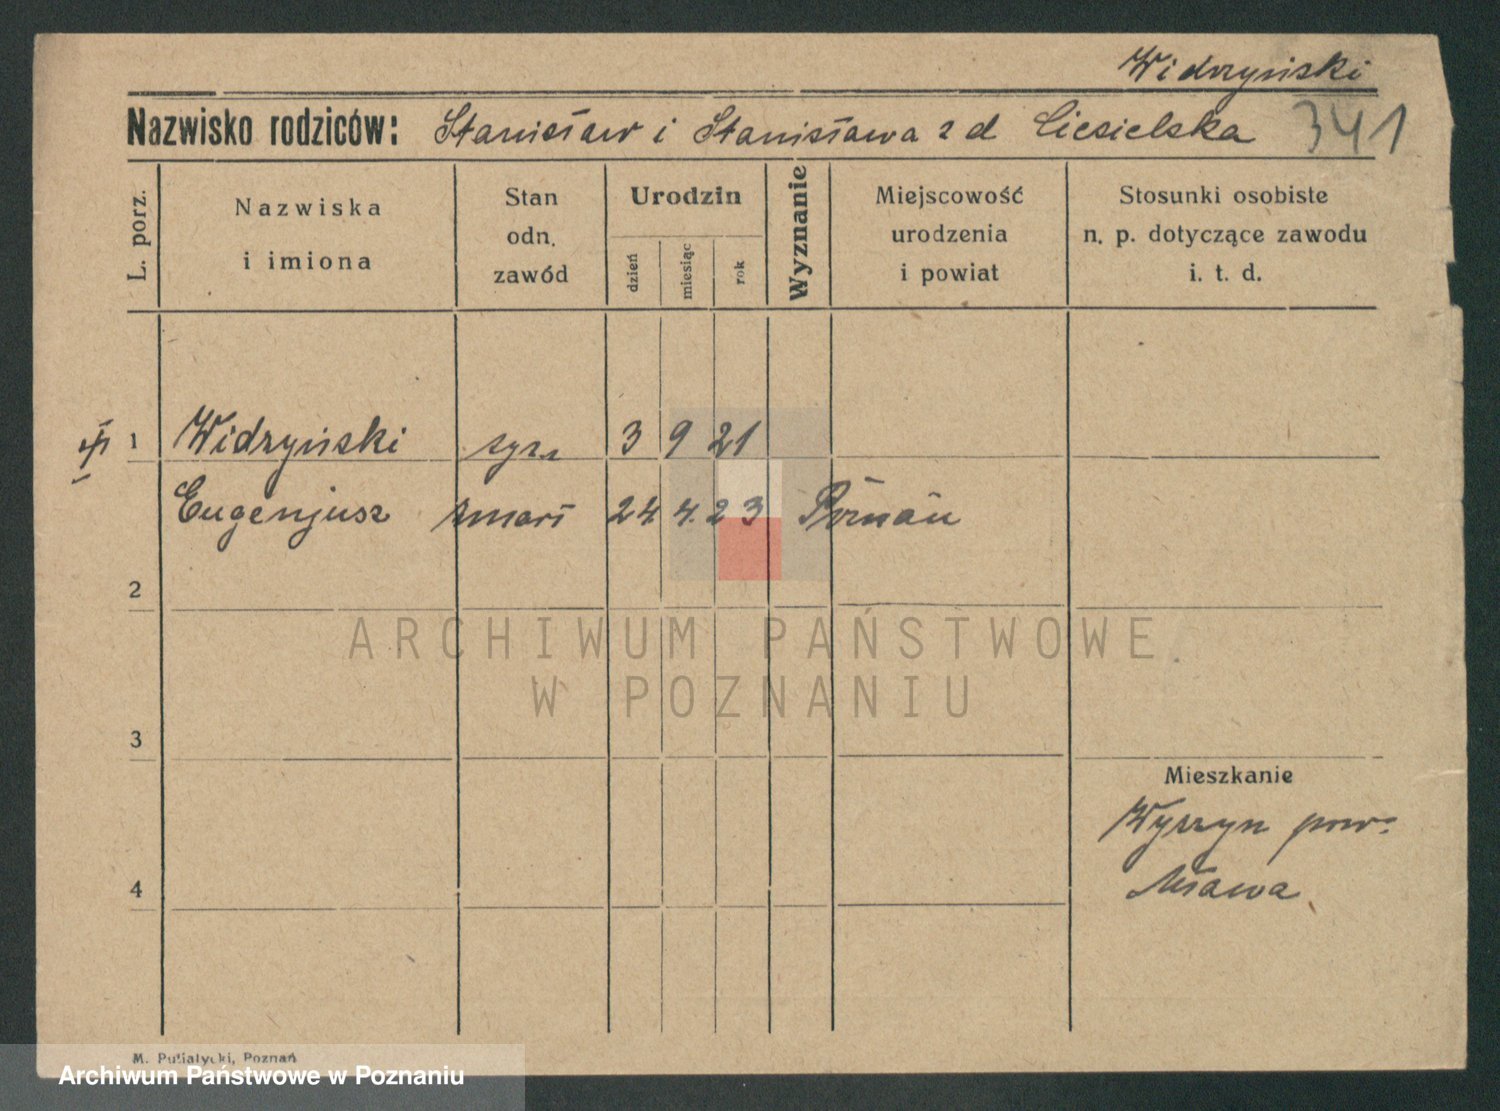 Widrzyński
Nazwisko rodziców: Stanisław i Stanisława z d Ciesielska 341
L. porz.
Nazwiska
i imiona
Stan
odn.
zawód
Urodzin
dzień
miesiąc
rok
Wyznanie
Miejscowość
urodzenia
i powiat
Stosunki osobiste
n. p. dotyczące zawodu
i. t. d.
1 Widrzyński syn 3 9 21
Eugenjusz zmarł 24 4. 23 Poznań
2
ARCHIWUM PAŃSTWOWE
W POZNANIU
3
Mieszkanie
Wyszyn pow.
Mława
4
M. Putiatycki, Poznań
Archiwum Państwowe w Poznaniu